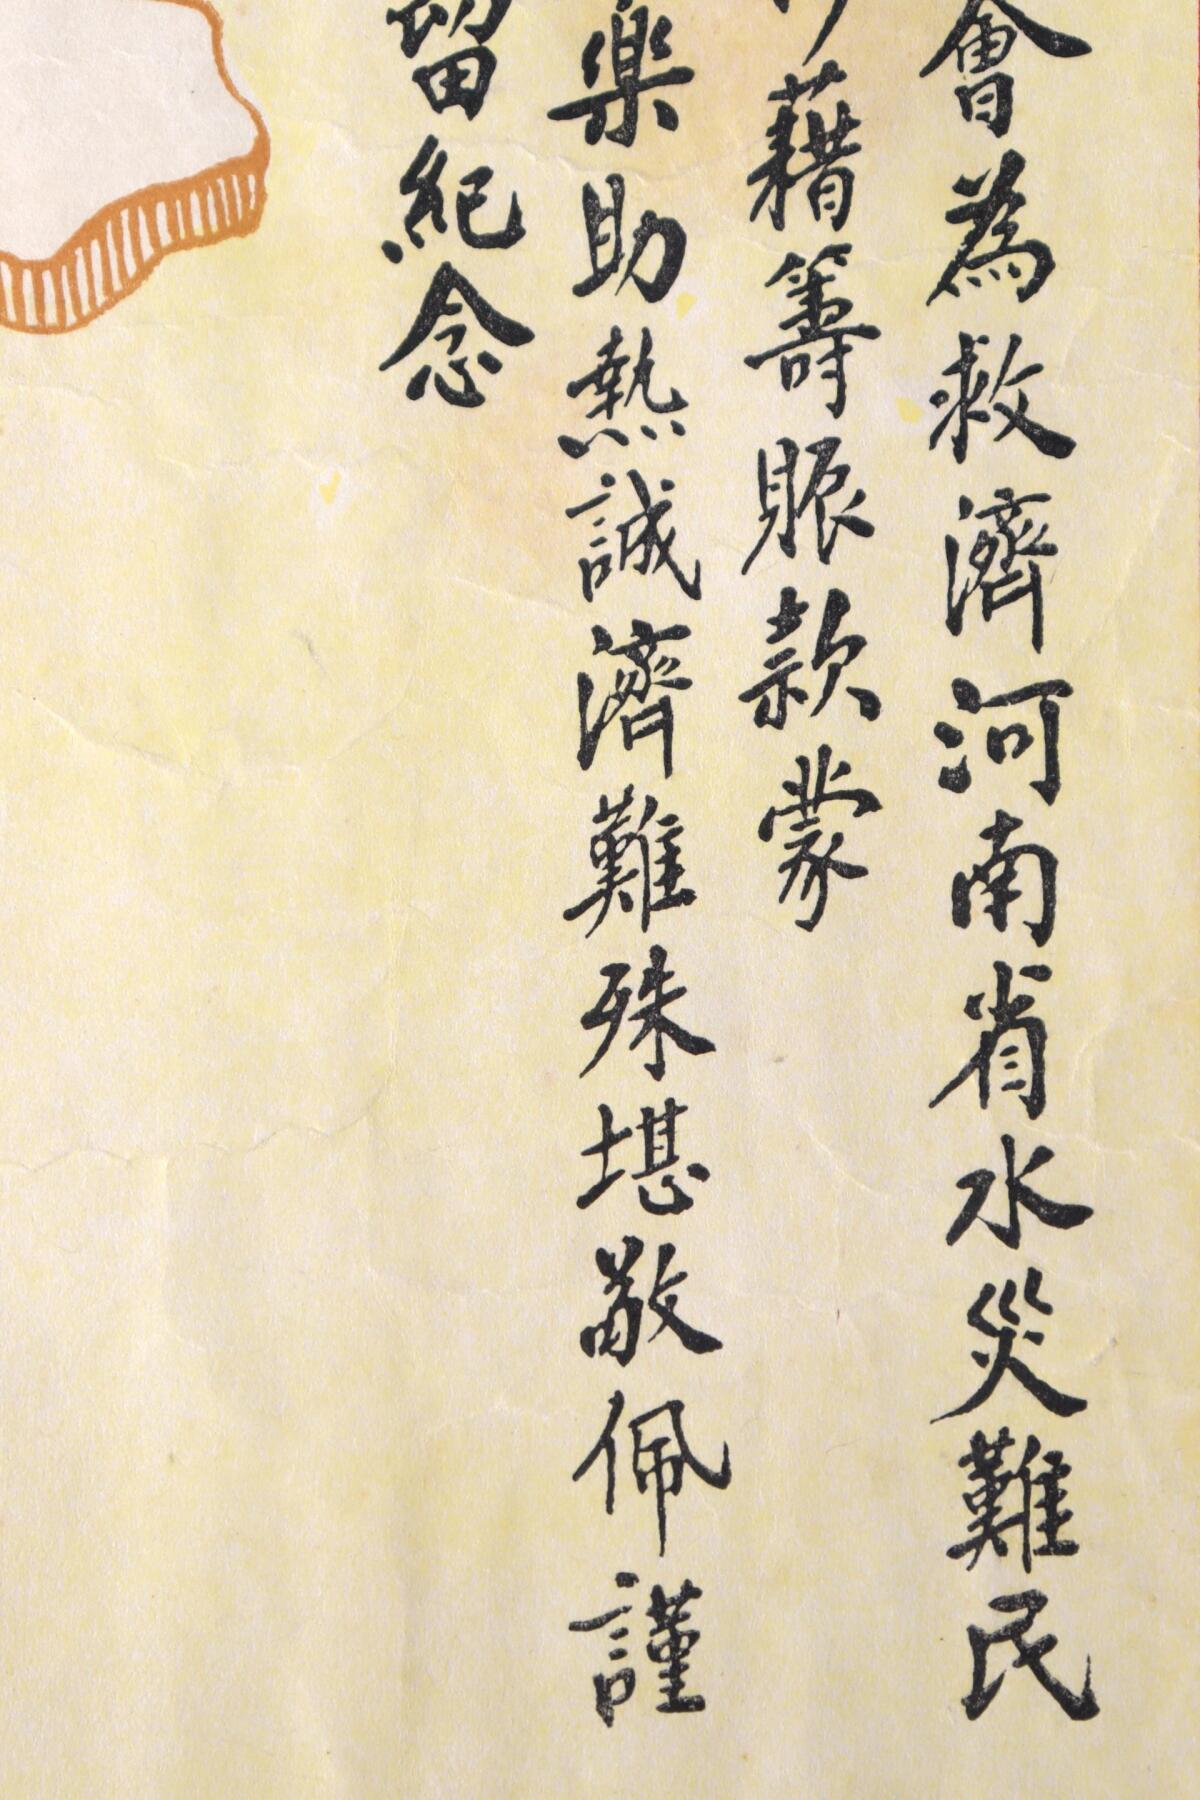 會為救濟河南省水災難民
藉籌賑款蒙
樂助熱誠濟難殊堪敬佩謹
留紀念